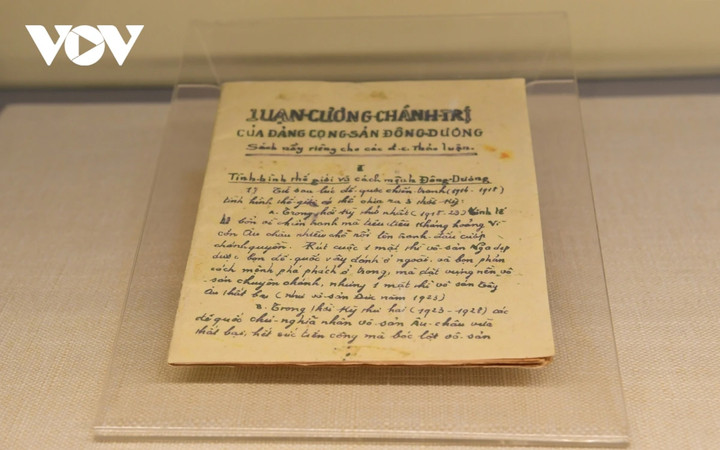 VOV
LUẬN-CƯƠNG-CHÁNH-TRỊ
CỦA ĐẢNG CỌNG-SẢN ĐÔNG-DƯƠNG
Sách nầy riêng cho các đ.c. thảo luận.
I
Tình-hình thế giới và cách mệnh Đông-Dương
1) Từ sau lúc đế quốc chiến tranh (1914-1918)
tình hình thế giới có thể chia ra 3 thời kỳ:
a. Trong thời kỳ thứ nhất (1918-23) kinh tế
tư bản vì chiến tranh mà tiêu điều khủng hoảng. Vô
sản Âu châu nhiều chỗ nổi lên tranh đấu cướp
chánh quyền. Rút cuộc 1 mặt thì vô-sản Nga dẹp
được bọn đế-quốc vây đánh ở ngoài và bọn phản
cách mệnh phá phách ở trong, mà đặt vững nền vô-
sản chuyên chánh, nhưng 1 mặt thì vô sản Tây
Âu thất bại (như vô-sản Đức năm 1923)
b. Trong thời kỳ thứ hai (1923-1928) các
đế quốc chủ-nghĩa nhân vô-sản Âu-châu vừa
thất bại, hết sức tấn công mà bóc lột vô-sản